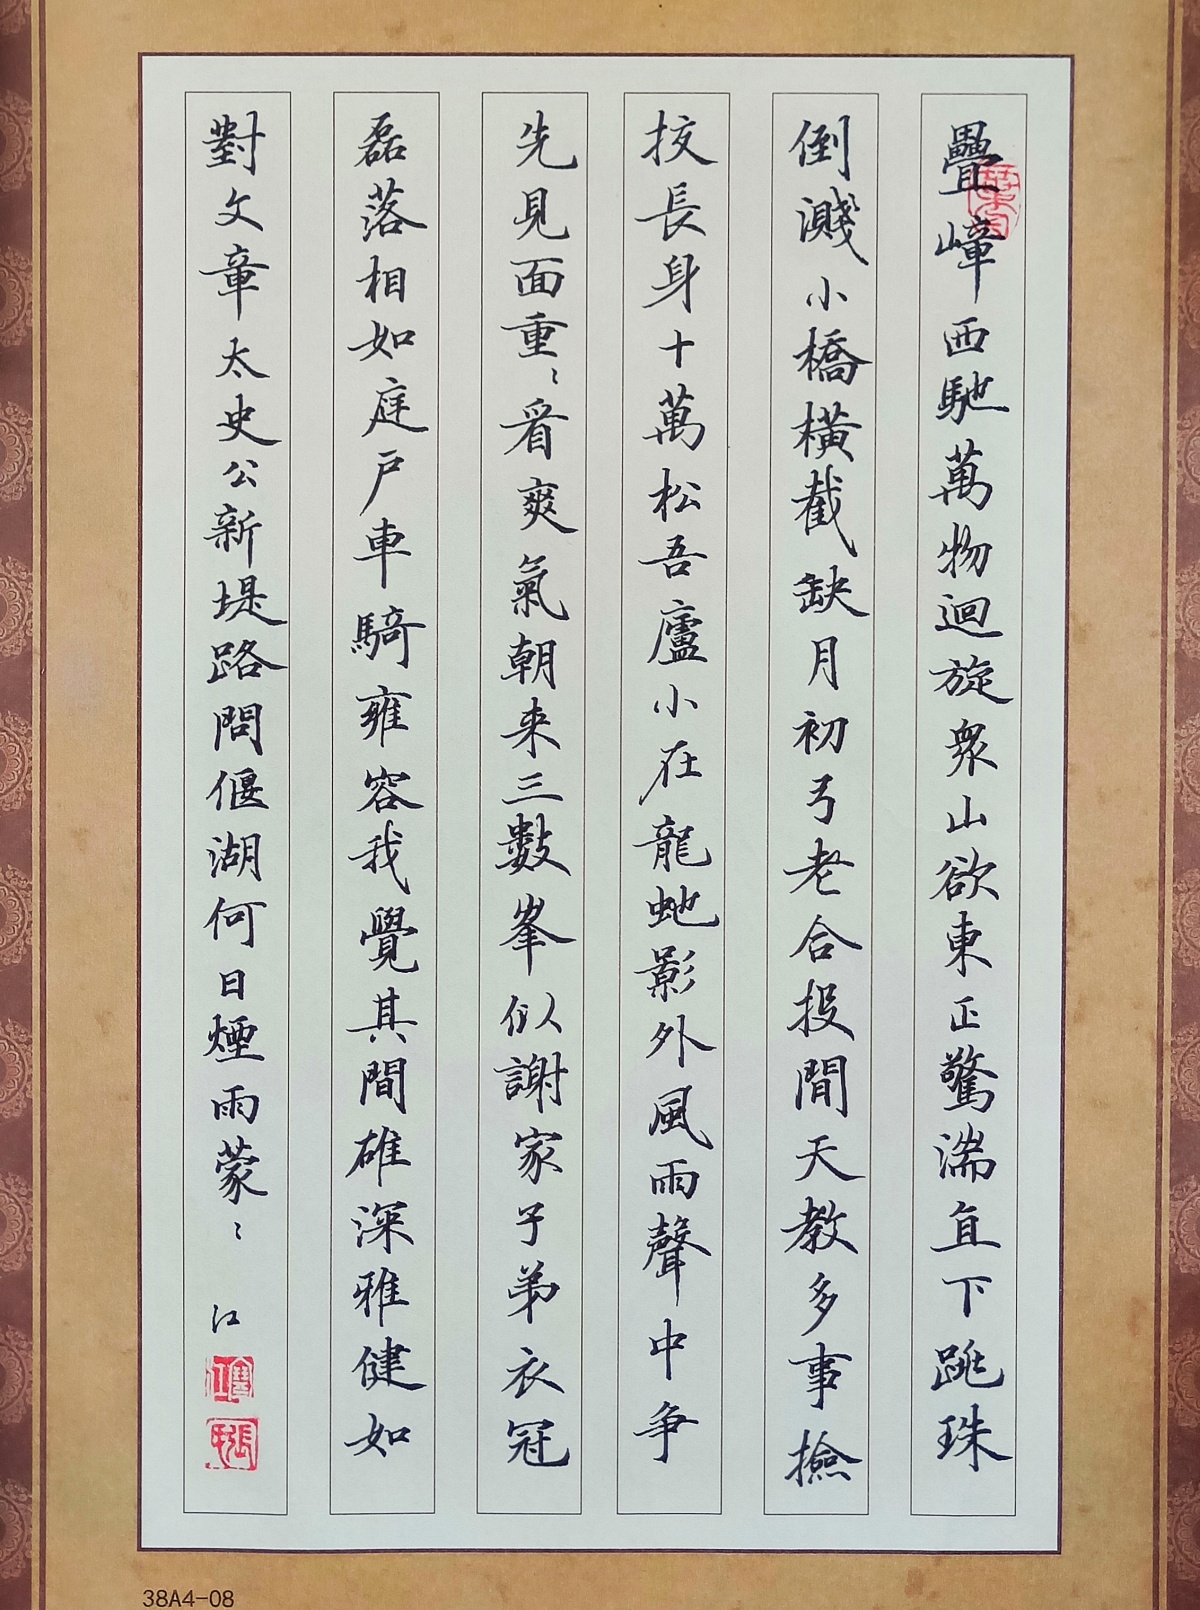 疊嶂西馳萬物迴旋眾山欲東正驚湍直下跳珠
倒濺小橋橫截缺月初弓老合投閒天教多事撿
挍長身十萬松吾廬小在龍虵影外風雨聲中争
先見面重〻看爽氣朝来三數峯似謝家子弟衣冠
磊落相如庭戶車騎雍容我覺其間雄深雅健如
對文章太史公新堤路問偃湖何日煙雨蒙〻 江
38A4-08